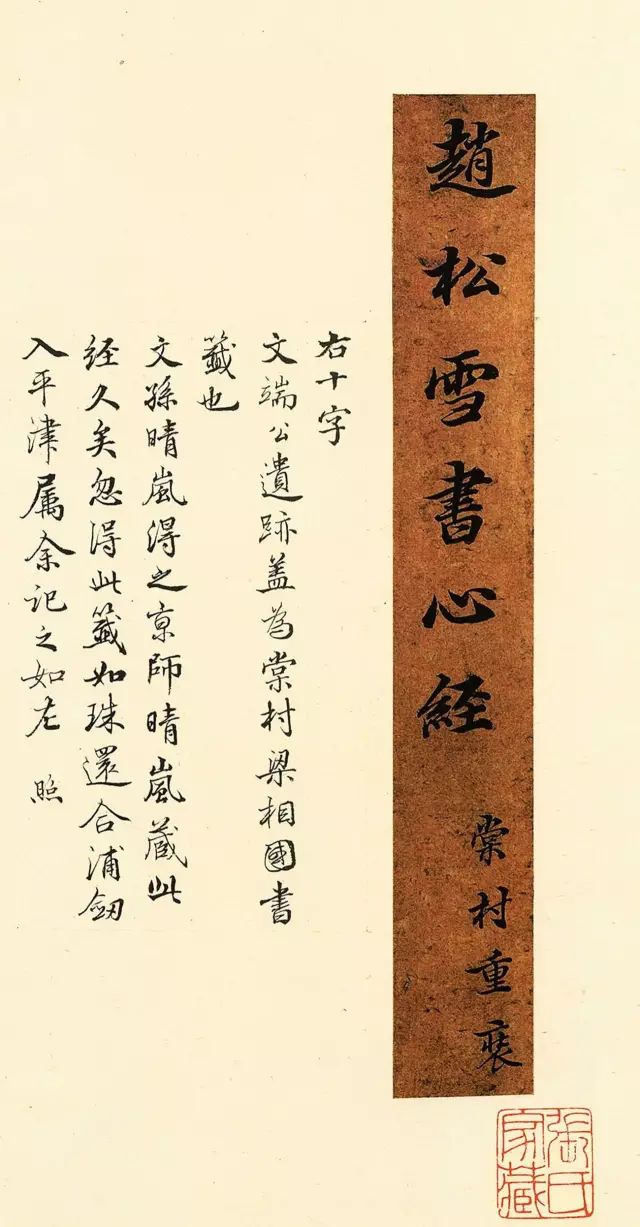 趙松雪書心經
棠村重裝
張氏家藏
右十字
文端公遺跡蓋為棠村梁相國書
籤也
文孫晴嵐得之京師晴嵐藏此
経久矣忽得此籤如珠還合浦劔
入平津属余記之如左 照